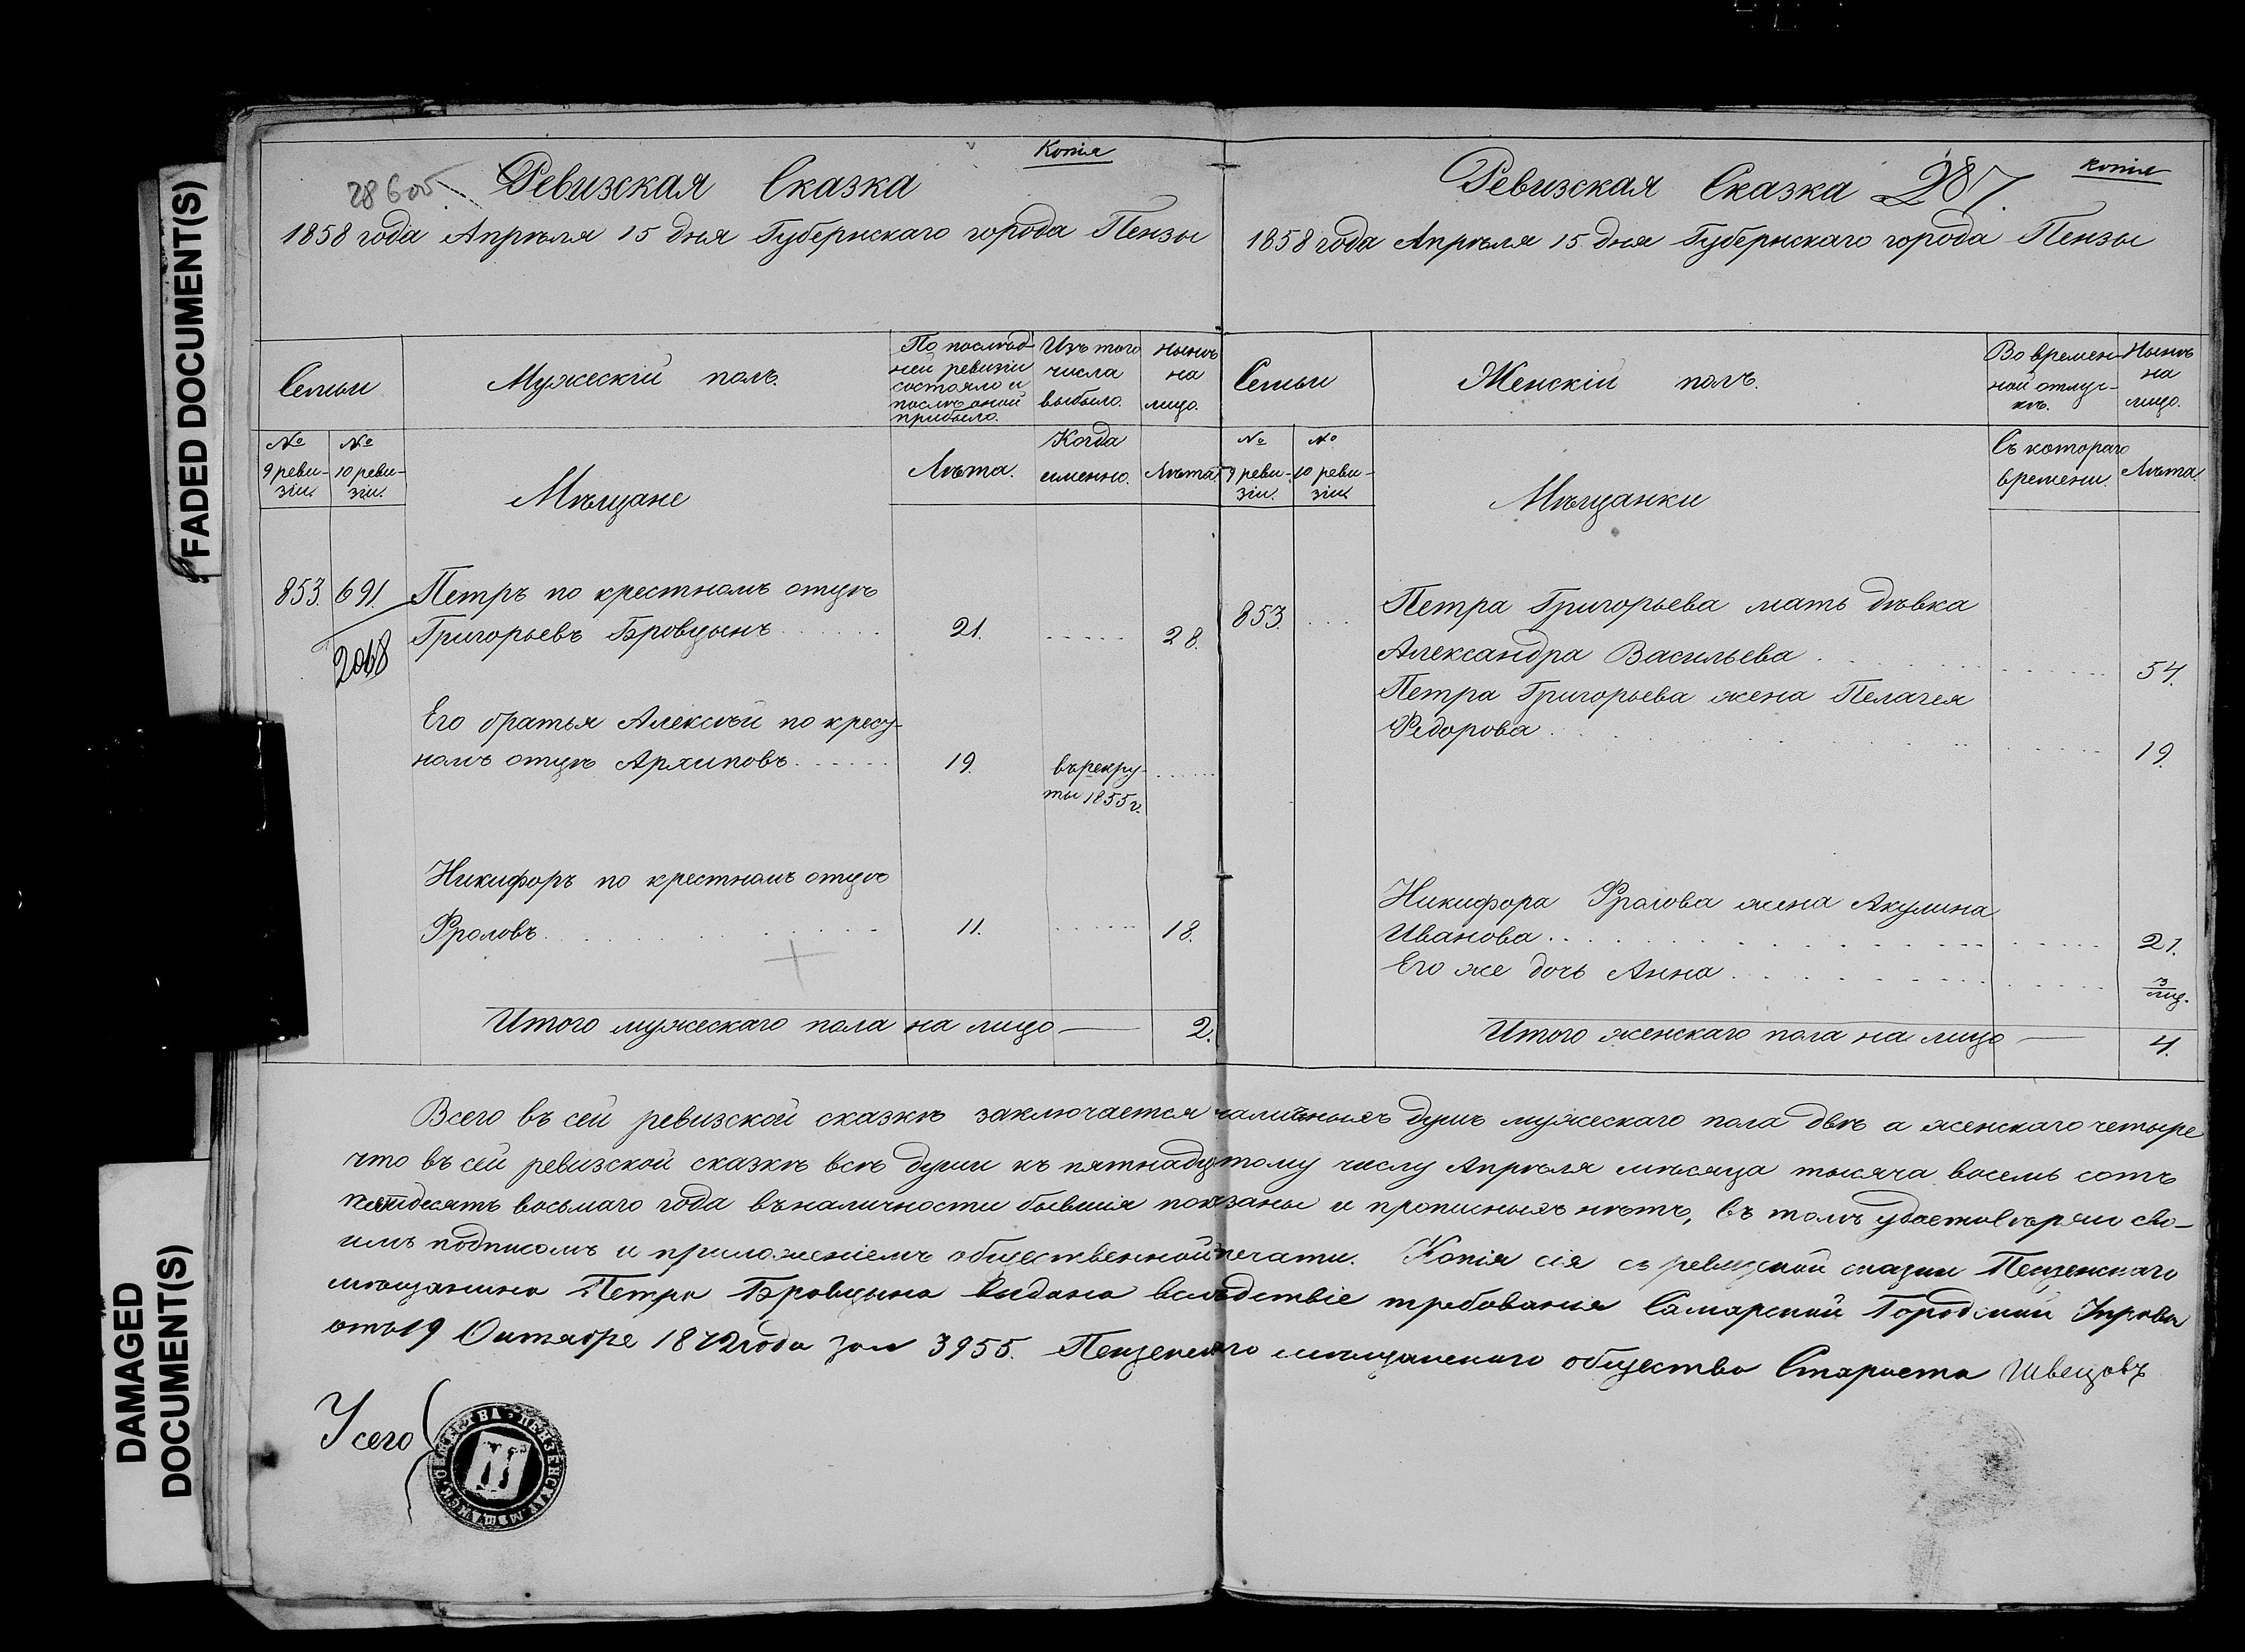 FADED DOCUMENT(S)
DAMAGED
DOCUMENT(S)
Копія
28605
Ревизская Сказка
1858 года Апрѣля 15 дня Губернскаго города Пензы
Семьи
Мужескій полъ.
По послѣд-
ней ревизіи
состояло и
послѣ оной
прибыло.
Изъ того
числа
выбыло.
Нынѣ
на
лицо.
№
9 реви-
зіи.
№
10 реви-
зіи.
Мѣщане
Лѣта.
Когда
именно.
Лѣта
853. 691. Петръ по крестномъ отцѣ
2068
Григорьевъ Бровцынъ 21. 28.
Его братья Алексѣй по крест-
номъ отцѣ Архиповъ 19. въ рекру-
ты 1855 г.
Никифоръ по крестномъ отцѣ
Фроловъ 11. 18.
Итого мужескаго пола на лицо — 2.
Копія
Ревизская Сказка 287.
1858 года Апрѣля 15 дня Губернскаго города Пензы
Семьи
Женскій полъ.
Во времен-
ной отлуч-
кѣ.
Нынѣ
на
лицо.
№
9 реви-
зіи.
№
10 реви-
зіи.
Мѣщанки
Съ котораго
времени.
Лѣта.
853. Петра Григорьева мать дѣвка
Александра Васильева 54.
Петра Григорьева жена Пелагея
Федорова 19.
Никифора Фролова жена Акулина
Иванова 21.
Его же дочь Анна 3
мѣс.
Итого женскаго пола на лицо — 4.
Всего въ сей ревизской сказкѣ заключается наличныхъ душъ мужескаго пола двѣ а женскаго четыре
что въ сей ревизской сказкѣ всѣ души къ пятнадцатому числу Апрѣля мѣсяца тысяча восемь сотъ
пятидесятъ восьмаго года въ наличности бывшія показаны и прописныхъ нѣтъ, въ томъ удостовѣряю сво-
имъ подписомъ и приложеніемъ общественной печати. Копія сія съ ревизской сказки Пензенскаго
мѣщанина Петра Бровцына выдана вслѣдствіе требованія Самарской Городской Управы
отъ 19 Октября 1872 года за № 3955. Пензенскаго мѣщанскаго общества Староста Швецовъ
У сего
ПЕНЗЕНСКАГО МѢЩАНСК. ОБЩЕСТВА
П